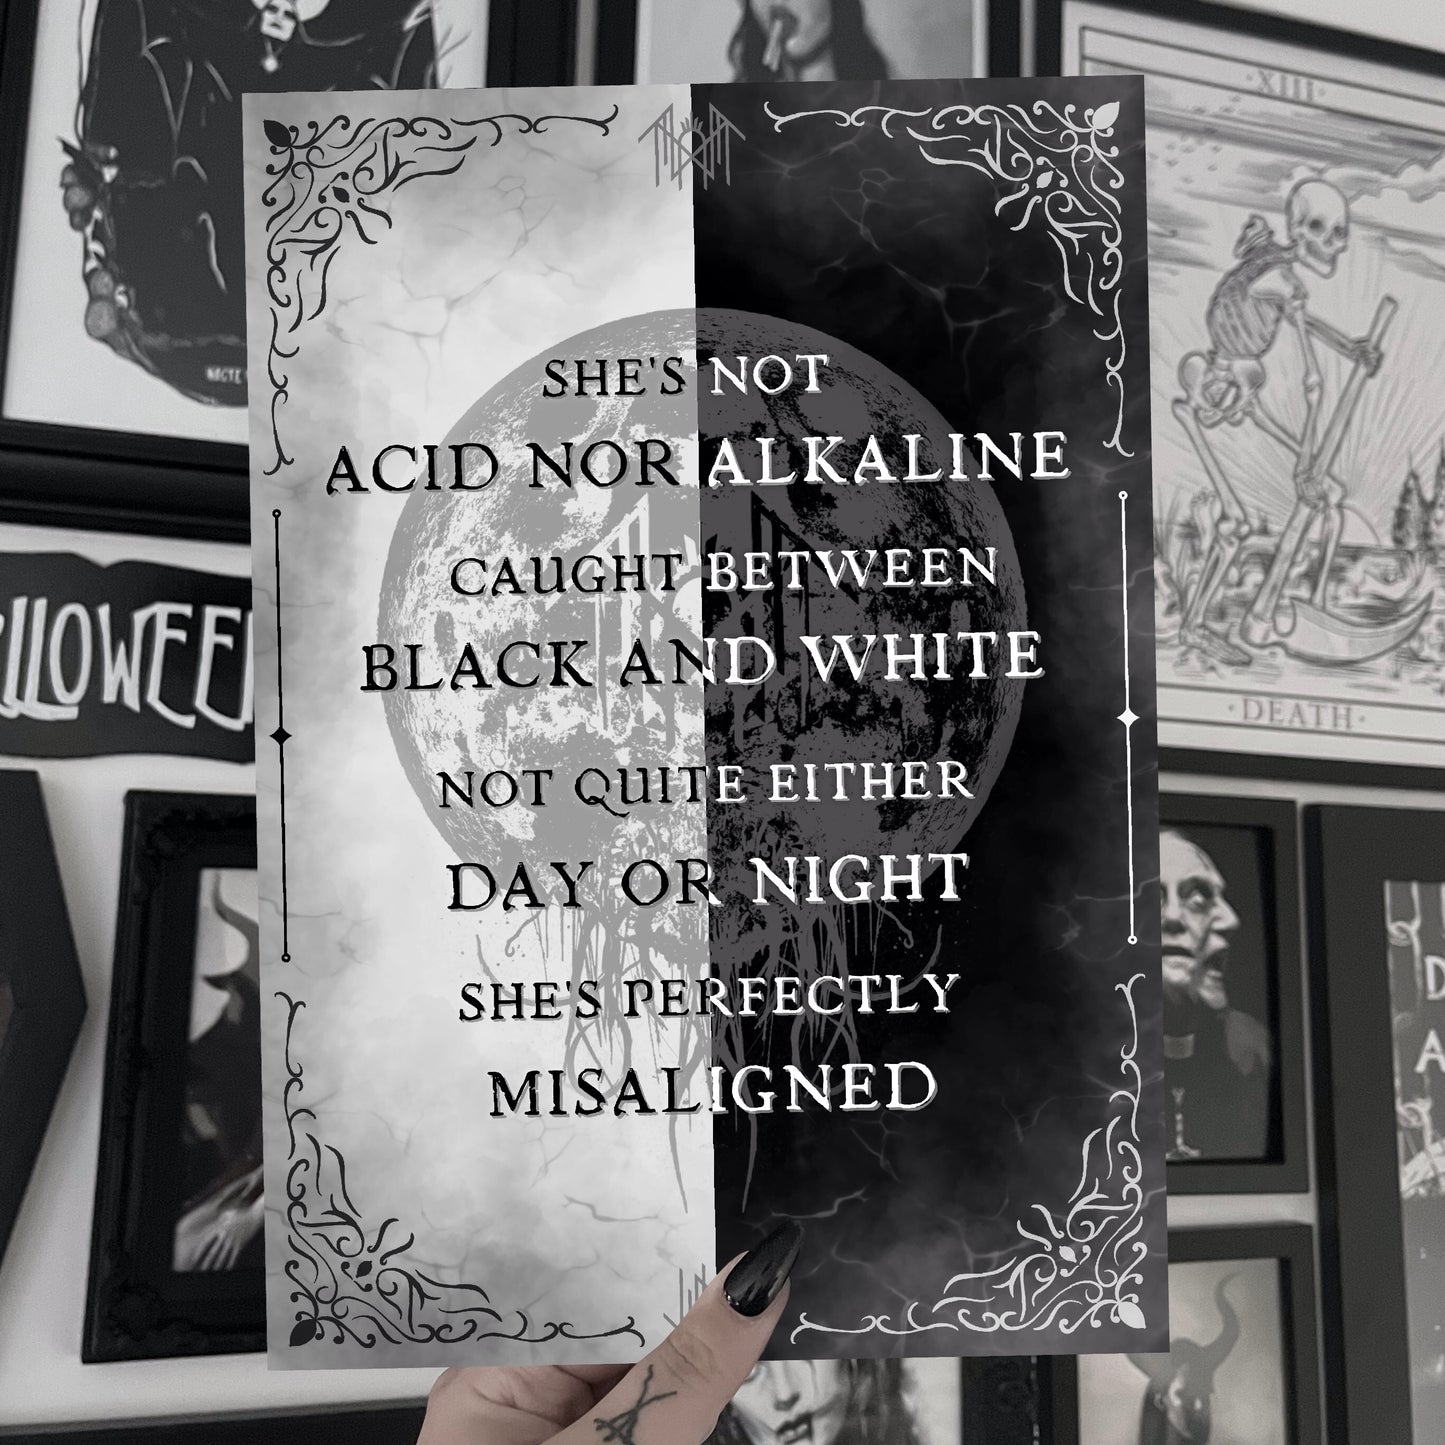 SHE'S NOT
ACID NOR ALKALINE
CAUGHT BETWEEN
BLACK AND WHITE
NOT QUITE EITHER
DAY OR NIGHT
SHE'S PERFECTLY
MISALIGNED
·XIII·
·DEATH·